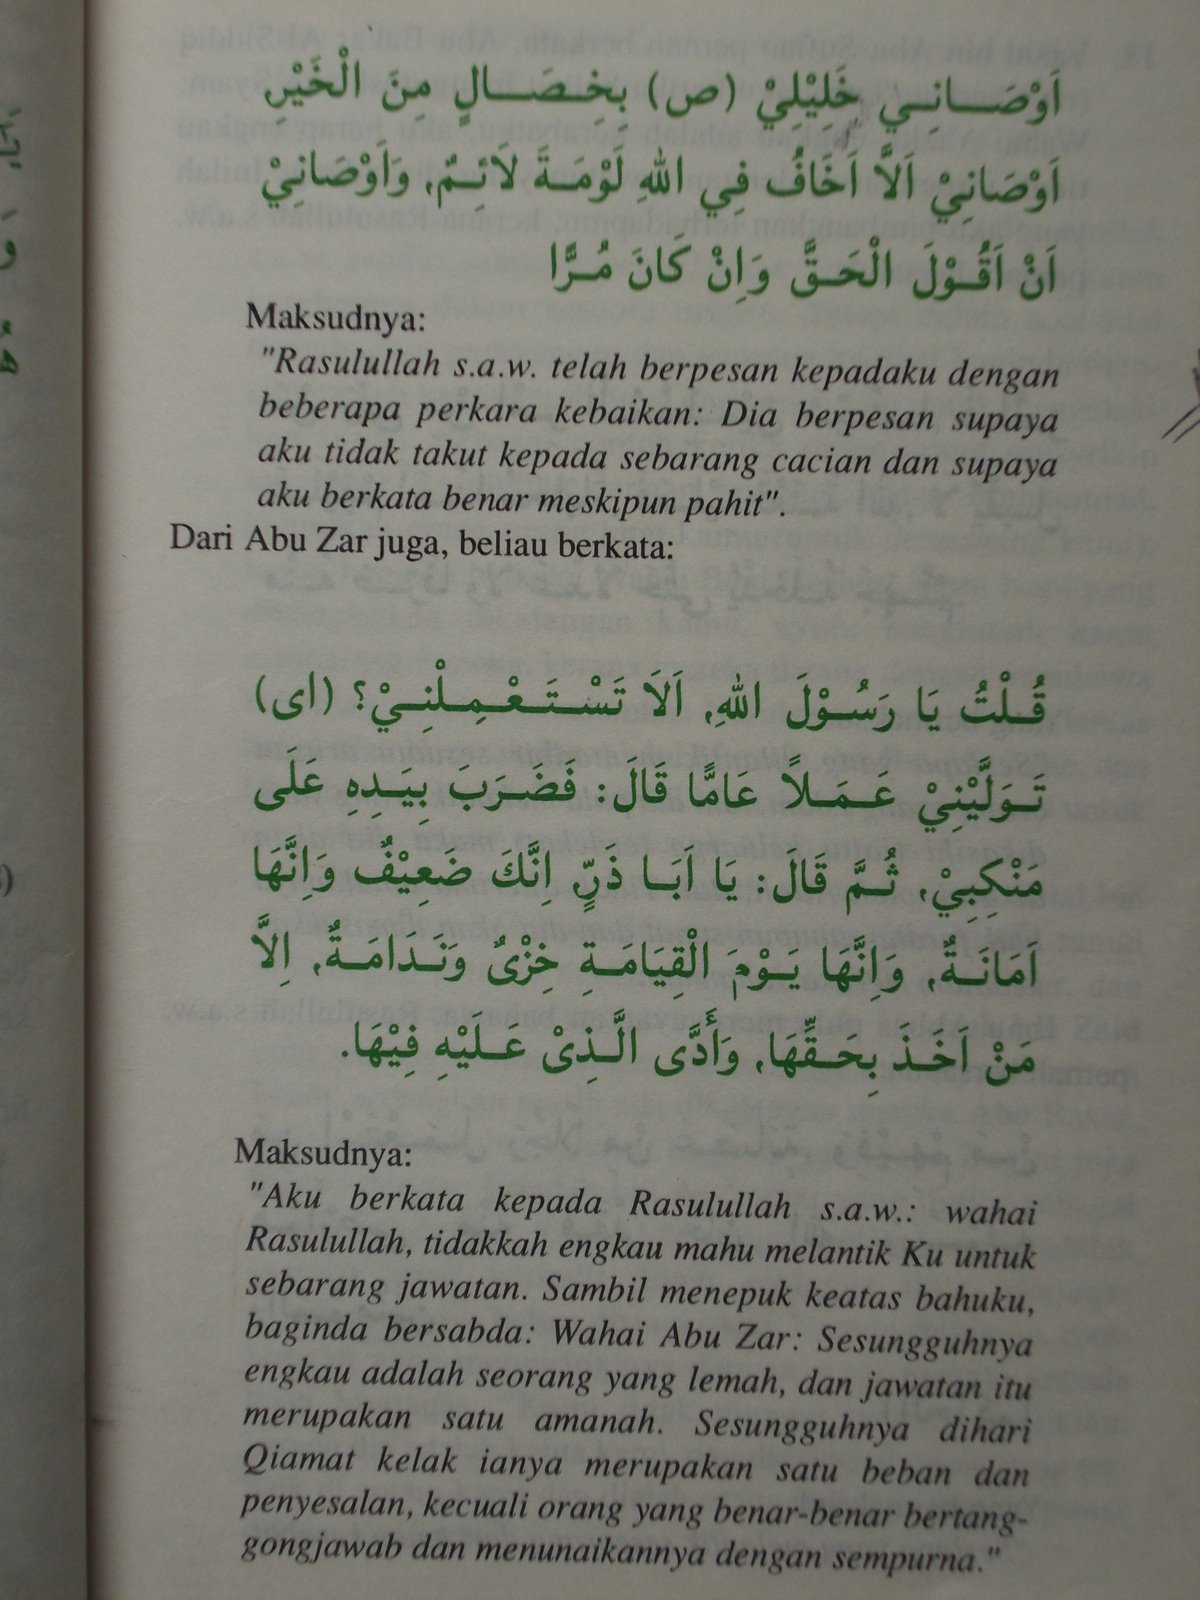 اَوْصَانِي خَلِيْلِيْ (ص) بِخِصَالٍ مِنَ الْخَيْرِ
اَوْصَانِيْ اَلَّا اَخَافُ فِي اللهِ لَوْمَةَ لَائِمٌ، وَاَوْصَانِيْ
اَنْ اَقُوْلَ الْحَقَّ وَاِنْ كَانَ مُرًّا
Maksudnya:
"Rasulullah s.a.w. telah berpesan kepadaku dengan
beberapa perkara kebaikan: Dia berpesan supaya
aku tidak takut kepada sebarang cacian dan supaya
aku berkata benar meskipun pahit".
Dari Abu Zar juga, beliau berkata:
قُلْتُ يَا رَسُوْلَ اللهِ، اَلَا تَسْتَعْمِلْنِيْ؟ (اى)
تَوَلَّيْنِيْ عَمَلاً عَامًّا قَالَ: فَضَرَبَ بِيَدِهِ عَلَى
مَنْكِبِيْ، ثُمَّ قَالَ: يَا اَبَا ذَرٍّ اِنَّكَ ضَعِيْفٌ وَاِنَّهَا
اَمَانَةٌ، وَاِنَّهَا يَوْمَ الْقِيَامَةِ خِزْىٌ وَنَدَامَةٌ، اِلَّا
مَنْ اَخَذَ بِحَقِّهَا، وَأَدَّى الَّذِىْ عَلَيْهِ فِيْهَا.
Maksudnya:
"Aku berkata kepada Rasulullah s.a.w.: wahai
Rasulullah, tidakkah engkau mahu melantik Ku untuk
sebarang jawatan. Sambil menepuk keatas bahuku,
baginda bersabda: Wahai Abu Zar: Sesungguhnya
engkau adalah seorang yang lemah, dan jawatan itu
merupakan satu amanah. Sesungguhnya dihari
Qiamat kelak ianya merupakan satu beban dan
penyesalan, kecuali orang yang benar-benar bertang-
gongjawab dan menunaikannya dengan sempurna."